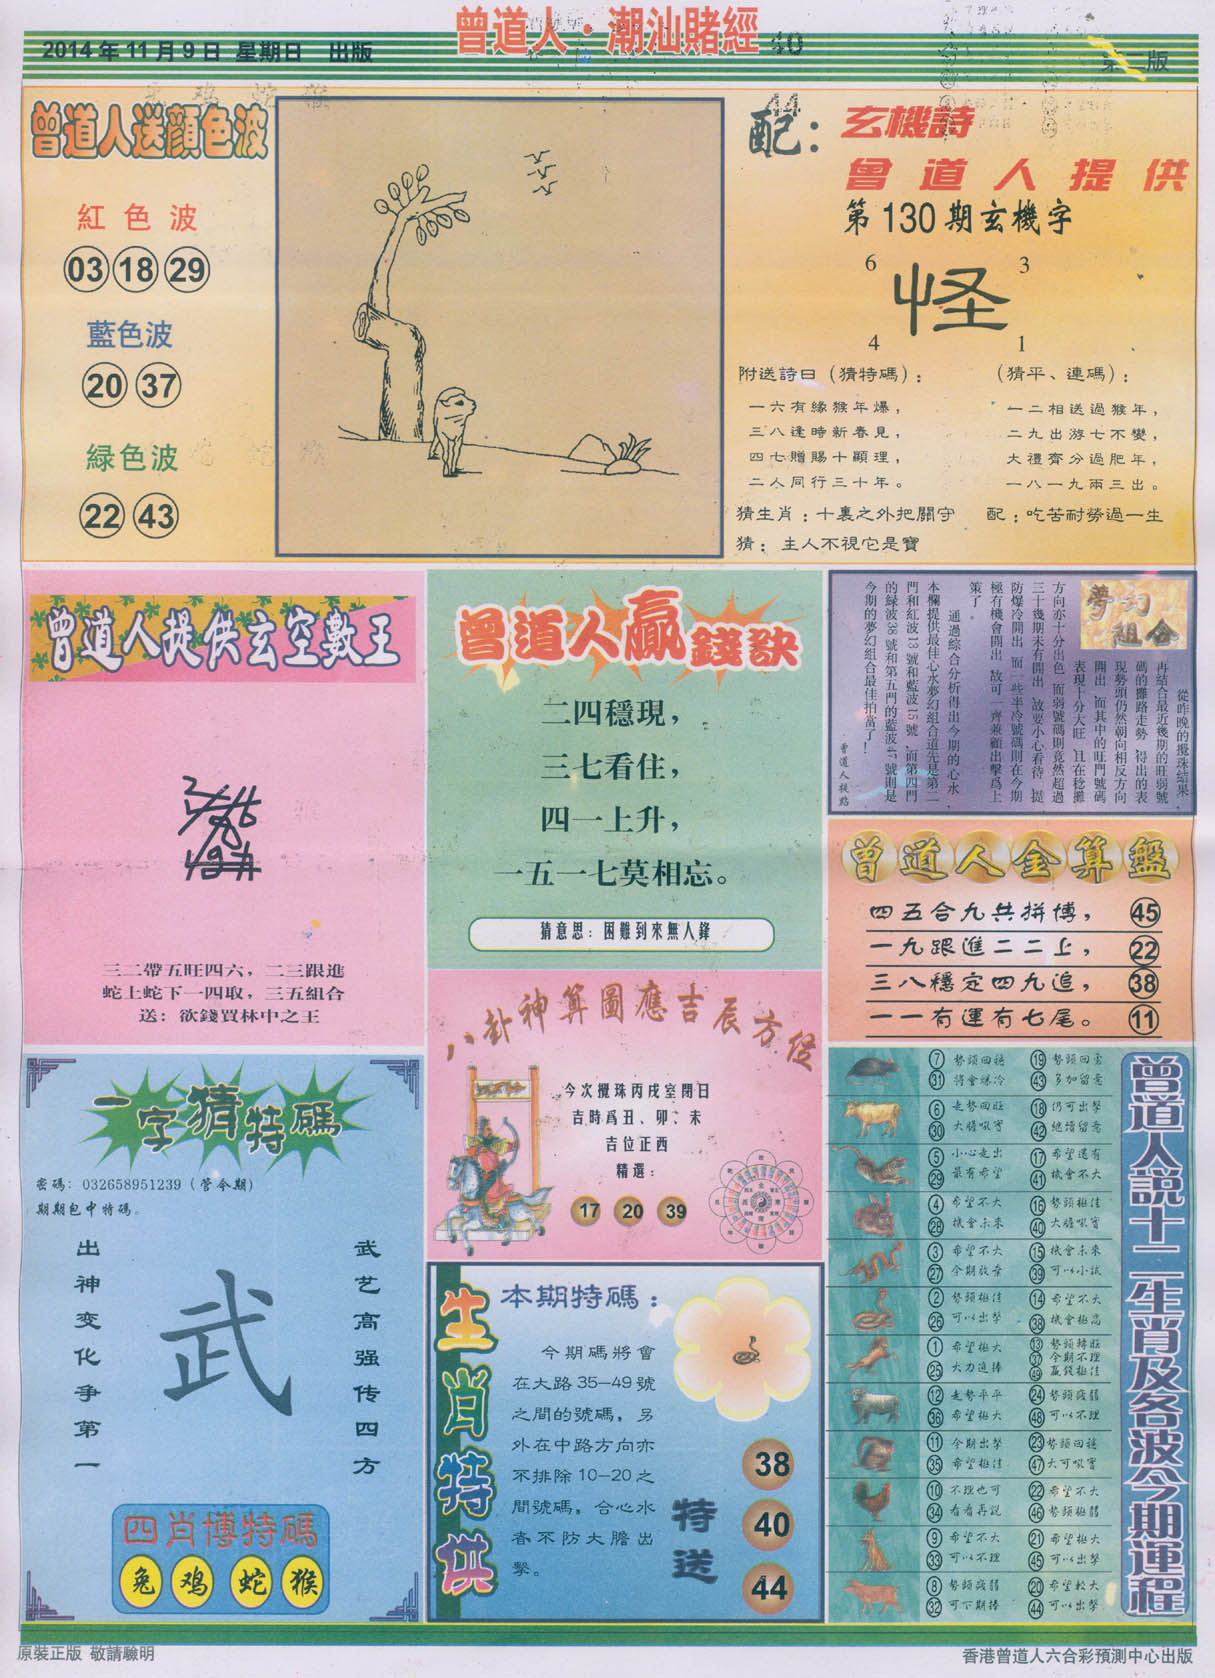 曾道人·潮汕賭經
2014年11月9日 星期日 出版
40
第二版
曾道人送顔色波
紅色波
03 18 29
藍色波
20 37
緑色波
22 43
44
配：
玄機詩
曾道人提供
第130期玄機字
6 3
怪
4 1
附送詩曰（猜特碼）：
一六有緣猴年爆，
三八逢時新春見，
四七贈賜十顯理，
二人同行三十年。
（猜平、連碼）：
一二相送過猴年，
二九出游七不變，
大禮齊分過肥年，
一八一九兩三出。
猜生肖：十裏之外把關守
配：吃苦耐勞過一生
猜：主人不視它是寶
曾道人提供玄空數王
三二帶五旺四六，二三跟進
蛇上蛇下一四取，三五組合
送：欲錢買林中之王
曾道人贏錢訣
二四穩現，
三七看住，
四一上升，
一五一七莫相忘。
猜意思：困難到來無人鋒
夢幻組合
從昨晚的攪珠結果
再結合最近幾期的旺弱號
碼的攤路走勢，得出的表
現勢頭仍然朝向相反方向
開出，而其中的旺門號碼
表現十分大旺，且在稔攤
方向亦十分出色，而弱號碼則竟然超過
三十幾期未有開出，故要小心看待，提
防爆冷開出，而一些半冷號碼則在今期
極有機會開出，故可一齊兼顧出擊爲上
策了。
通過綜合分析得出今期的心水
本欄提供最佳心水夢幻組合道先是第二
門和紅波13號和藍波15號，而第四門
的緑波38號和第五門的藍波47號則是
今期的夢幻組合最佳拍當了！
曾道人提點
曾道人金算盤
四五合九共拼博， 45
一九跟進二二上， 22
三八穩定四九追， 38
一一有運有七尾。 11
八卦神算圖應吉辰方位
今次攪珠丙戌室閉日
吉時爲丑、卯、未
吉位正西
精選：
17 20 39
一字猜特碼
密碼：032658951239（管今期）
期期包中特碼。
出神变化争第一
武
武艺高强传四方
四肖博特碼
兔 鸡 蛇 猴
生肖特供
本期特碼：
今期碼將會
在大路35—49號
之間的號碼，另
外在中路方向亦
不排除10—20之
間號碼，合心水
者不防大膽出
擊。
特送
38
40
44
曾道人説十二生肖及各波今期運程
7 勢頭回穩 19 勢頭回霊
31 將會爆冷 43 多加留意
6 走勢回旺 18 仍可出擊
30 大膽吼實 42 繼續留意
5 小心走出 17 希望還有
29 最有希望 41 機會不大
4 希望不大 16 勢頭極佳
28 機會未來 40 大膽吼實
3 希望不大 15 機會未來
27 今期放棄 39 可以小試
2 勢頭極佳 14 希望不大
26 可以出擊 38 機會極高
1 希望極大 13 勢頭轉旺
37 今期不理
25 大力追捧 49 贏錢極佳
12 走勢平平 24 勢頭疲弱
36 希望極大 48 可以不理
11 今期出擊 23 勢頭回穩
35 希望極佳 47 大可吼實
10 不理也可 22 希望不大
34 看看再説 46 勢頭極弱
9 希望不大 21 希望極大
33 可以不理 45 可以出擊
8 勢頭疲弱 20 希望較大
32 可下期捧 44 可以出擊
原裝正版 敬請驗明
香港曾道人六合彩預測中心出版